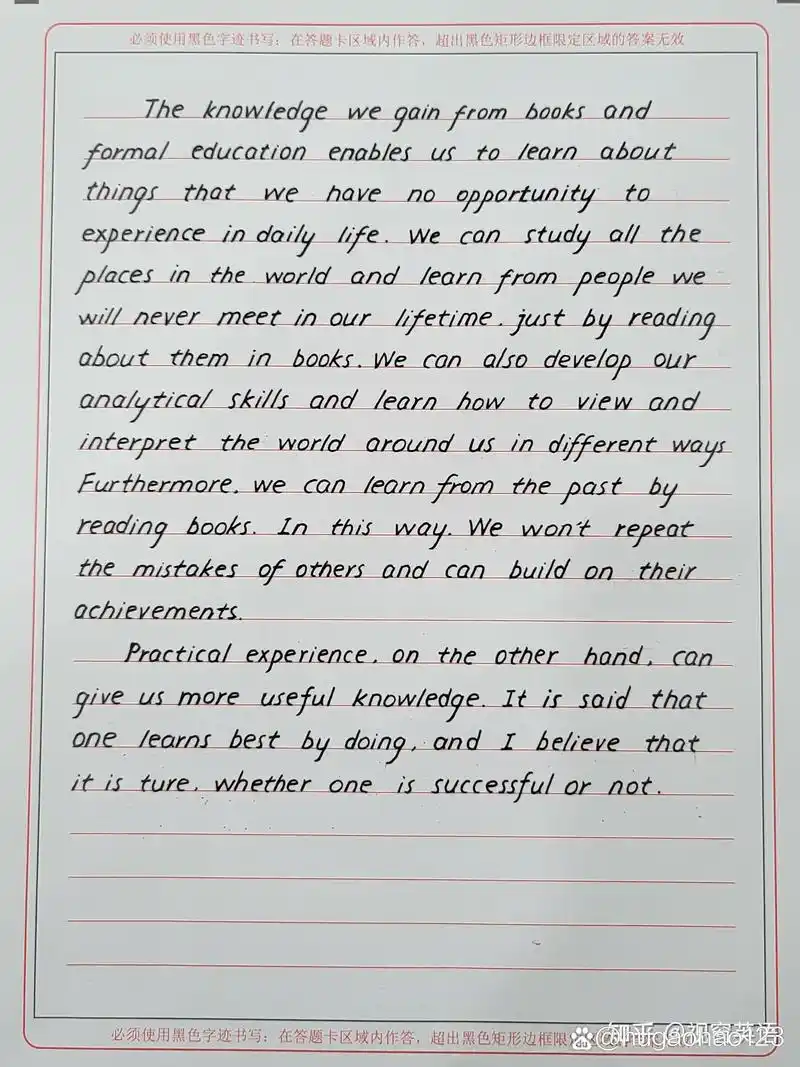 必须使用黑色字迹书写：在答题卡区域内作答，超出黑色矩形边框限定区域的答案无效
The knowledge we gain from books and
formal education enables us to learn about
things that we have no opportunity to
experience in daily life. We can study all the
places in the world and learn from people we
will never meet in our lifetime. just by reading
about them in books. We can also develop our
analytical skills and learn how to view and
interpret the world around us in different ways
Furthermore. we can learn from the past by
reading books. In this way. We won't repeat
the mistakes of others and can build on their
achievements.
Practical experience. on the other hand, can
give us more useful knowledge. It is said that
one learns best by doing, and I believe that
it is ture. whether one is successful or not.
必须使用黑色字迹书写：在答题卡区域内作答，超出黑色矩形边框限